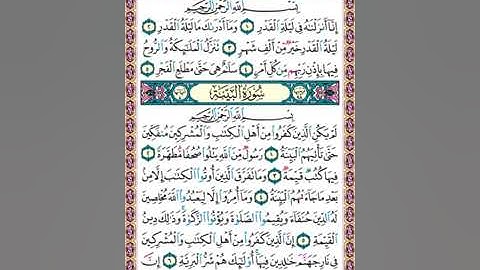 بِسْمِ اللَّهِ الرَّحْمَٰنِ الرَّحِيمِ
إِنَّا أَنزَلْنَٰهُ فِى لَيْلَةِ الْقَدْرِ ١ وَمَا أَدْرَىٰكَ مَا لَيْلَةُ الْقَدْرِ ٢
لَيْلَةُ الْقَدْرِ خَيْرٌ مِّنْ أَلْفِ شَهْرٍ ٣ تَنَزَّلُ الْمَلَٰٓئِكَةُ وَالرُّوحُ
فِيهَا بِإِذْنِ رَبِّهِم مِّن كُلِّ أَمْرٍ ٤ سَلَٰمٌ هِىَ حَتَّىٰ مَطْلَعِ الْفَجْرِ ٥
سُورَةُ الْبَيِّنَةِ
بِسْمِ اللَّهِ الرَّحْمَٰنِ الرَّحِيمِ
لَمْ يَكُنِ الَّذِينَ كَفَرُوا مِنْ أَهْلِ الْكِتَٰبِ وَالْمُشْرِكِينَ مُنفَكِّينَ
حَتَّىٰ تَأْتِيَهُمُ الْبَيِّنَةُ ١ رَسُولٌ مِّنَ اللَّهِ يَتْلُوا صُحُفًا مُّطَهَّرَةً ٢
فِيهَا كُتُبٌ قَيِّمَةٌ ٣ وَمَا تَفَرَّقَ الَّذِينَ أُوتُوا الْكِتَٰبَ إِلَّا مِن
بَعْدِ مَا جَآءَتْهُمُ الْبَيِّنَةُ ٤ وَمَا أُمِرُوا إِلَّا لِيَعْبُدُوا اللَّهَ مُخْلِصِينَ
لَهُ الدِّينَ حُنَفَآءَ وَيُقِيمُوا الصَّلَوٰةَ وَيُؤْتُوا الزَّكَوٰةَ وَذَٰلِكَ دِينُ
الْقَيِّمَةِ ٥ إِنَّ الَّذِينَ كَفَرُوا مِنْ أَهْلِ الْكِتَٰبِ وَالْمُشْرِكِينَ
فِى نَارِ جَهَنَّمَ خَٰلِدِينَ فِيهَا أُولَٰٓئِكَ هُمْ شَرُّ الْبَرِيَّةِ ٦ إِنَّ